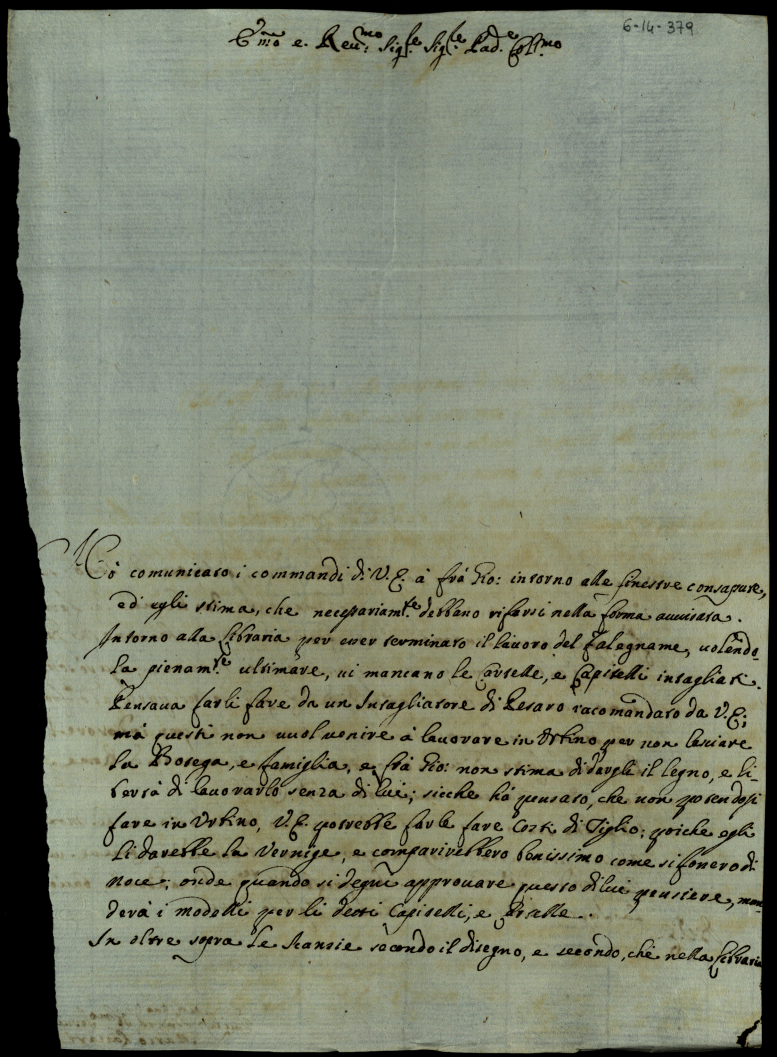 6-14-379
Em̃o e. Reu:mo Sig:re Sig:re Pad.e Col:mo
Hò comunicato i commandi di V.E. à frà Gio: intorno alle finestre consapute,
ed egli stima, che necessariam:te debbano rifarsi nella forma auuisata.
Intorno alla Libraria per esser terminato il lauoro del Falegname, uolendo-
la pienam:te ultimare, ui mancano le Cartelle, e Capitelli intagliati.
Pensaua farli fare da un Intagliatore di Pesaro racomandato da V.E;
mà questi non uuol uenire à lauorare in Urbino per non lasciare
la Botega, e famiglia, e frà Gio: non stima di dargli il legno, e li-
bertà di lauorarlo senza di lui; sicche hà pensato, che non potendosi
fare in Urbino, V.E. potrebbe farle fare Costì di Tiglio; poiche egli
li darebbe la Vernige, e comparirebbero benissimo come si fonero di
noce; onde quando si degni approuare questo di lui pensiere, man
derà i modelli per li detti Capitelli, e
In oltre sopra le Scanzie secondo il disegno, e secondo, che nella Libraria